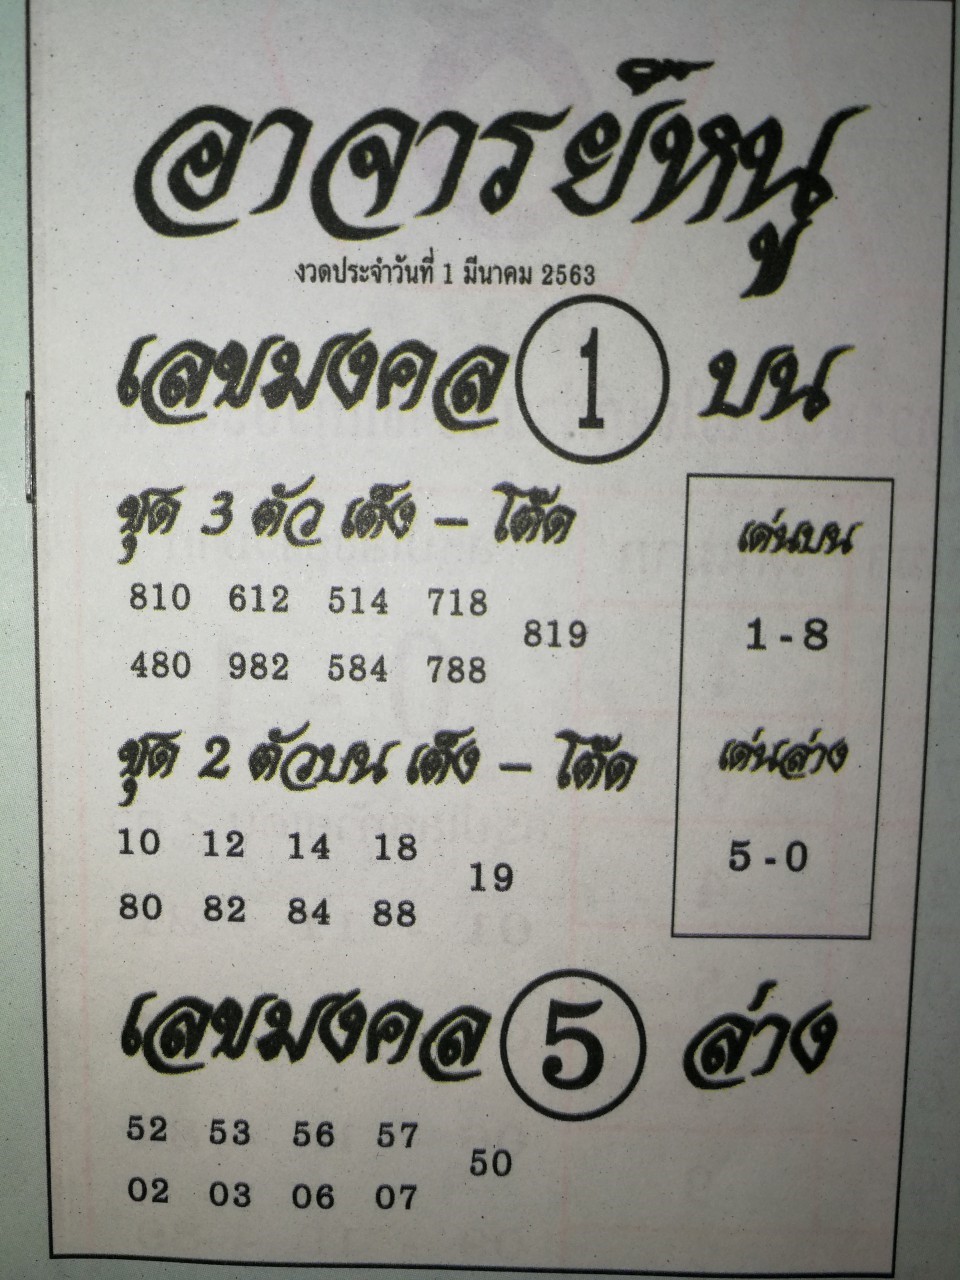 อาจารย์หนู
งวดประจำวันที่ 1 มีนาคม 2563
เลขมงคล 1 บน
ชุด 3 ตัว เต็ง – โต๊ด
810 612 514 718
819
480 982 584 788
เด่นบน
1 - 8
เด่นล่าง
5 - 0
ชุด 2 ตัวบน เต็ง – โต๊ด
10 12 14 18
19
80 82 84 88
เลขมงคล 5 ล่าง
52 53 56 57
50
02 03 06 07